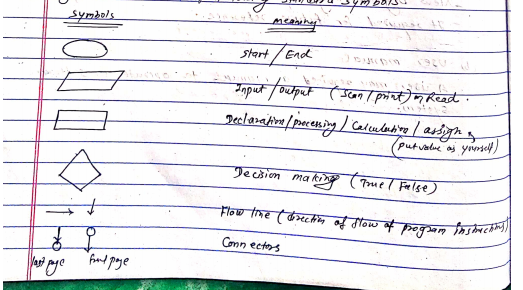 standard symbols
symbols meaning
start / End
Input / output (scan / print) or Read.
Declaration / processing / Calculation / assign
(put value as yourself)
Decision making (True / False)
Flow line (direction of flow of program instructions)
Connectors
last page front page